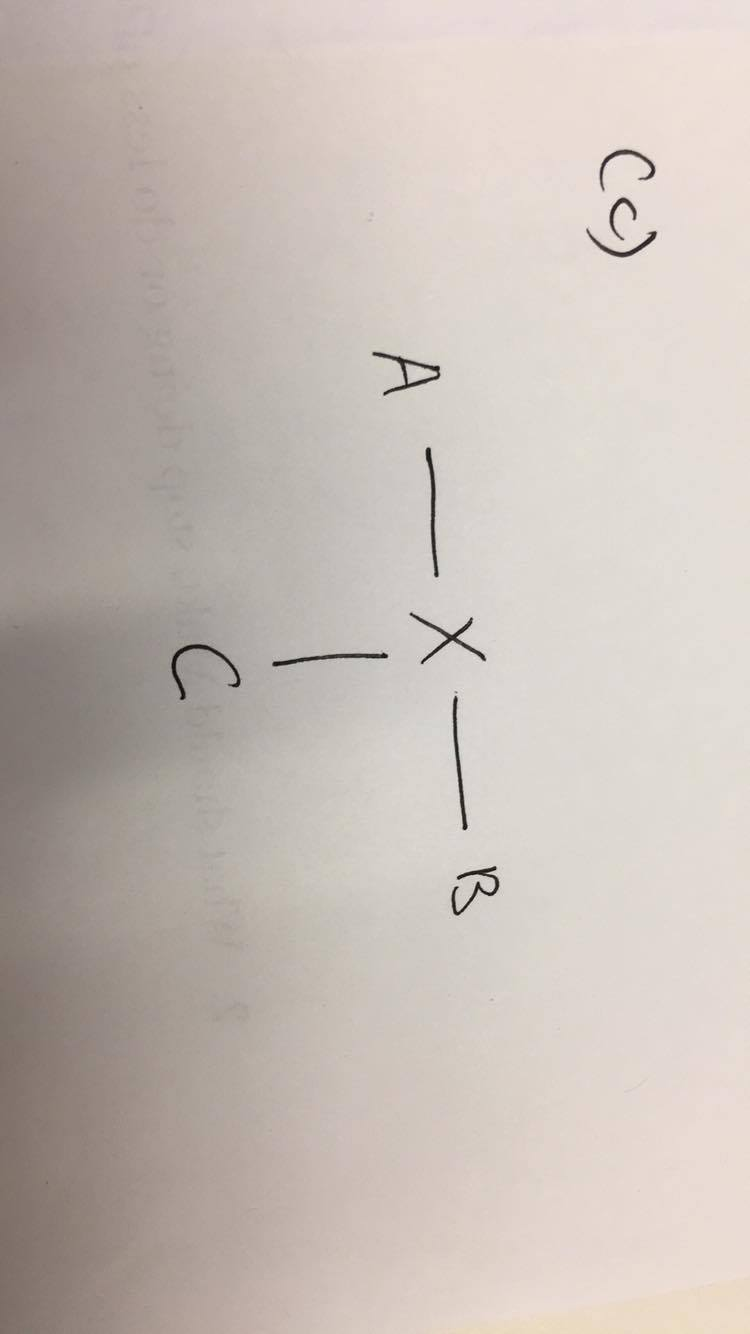 (c)
A — X — B
|
C